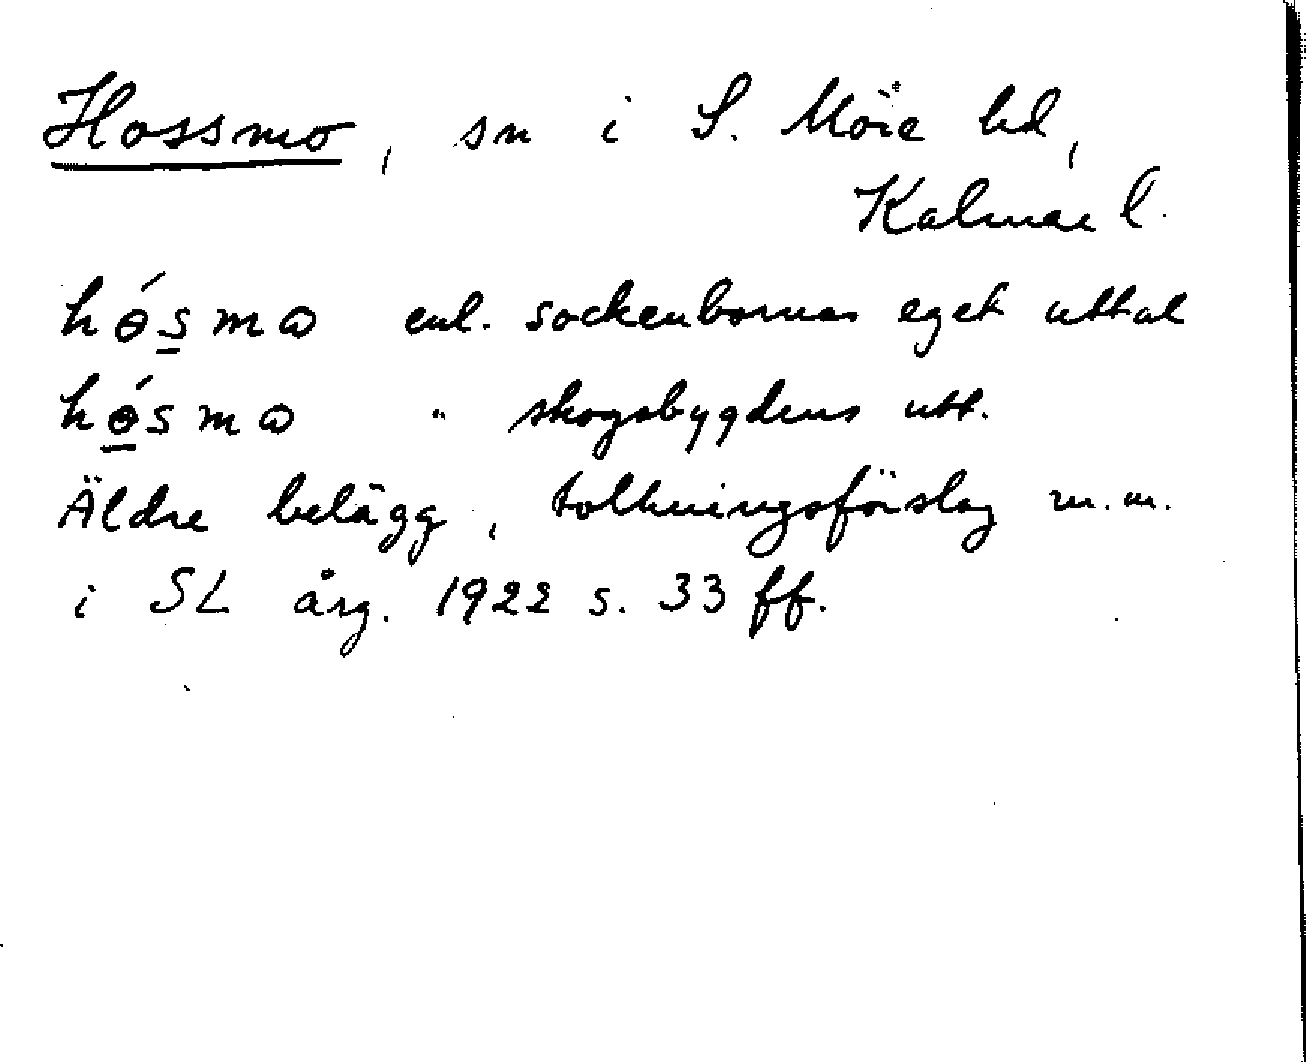 Hossmo, sn i S. Möre hd,
Kalmar l.
hɵ́s̲mɷ enl. sockenbornas eget uttal
hɵ̲́smɷ " skogsbygdens utt.
Äldre belägg, tolkningsförslag m.m.
i SL årg. 1922 s. 33 ff.